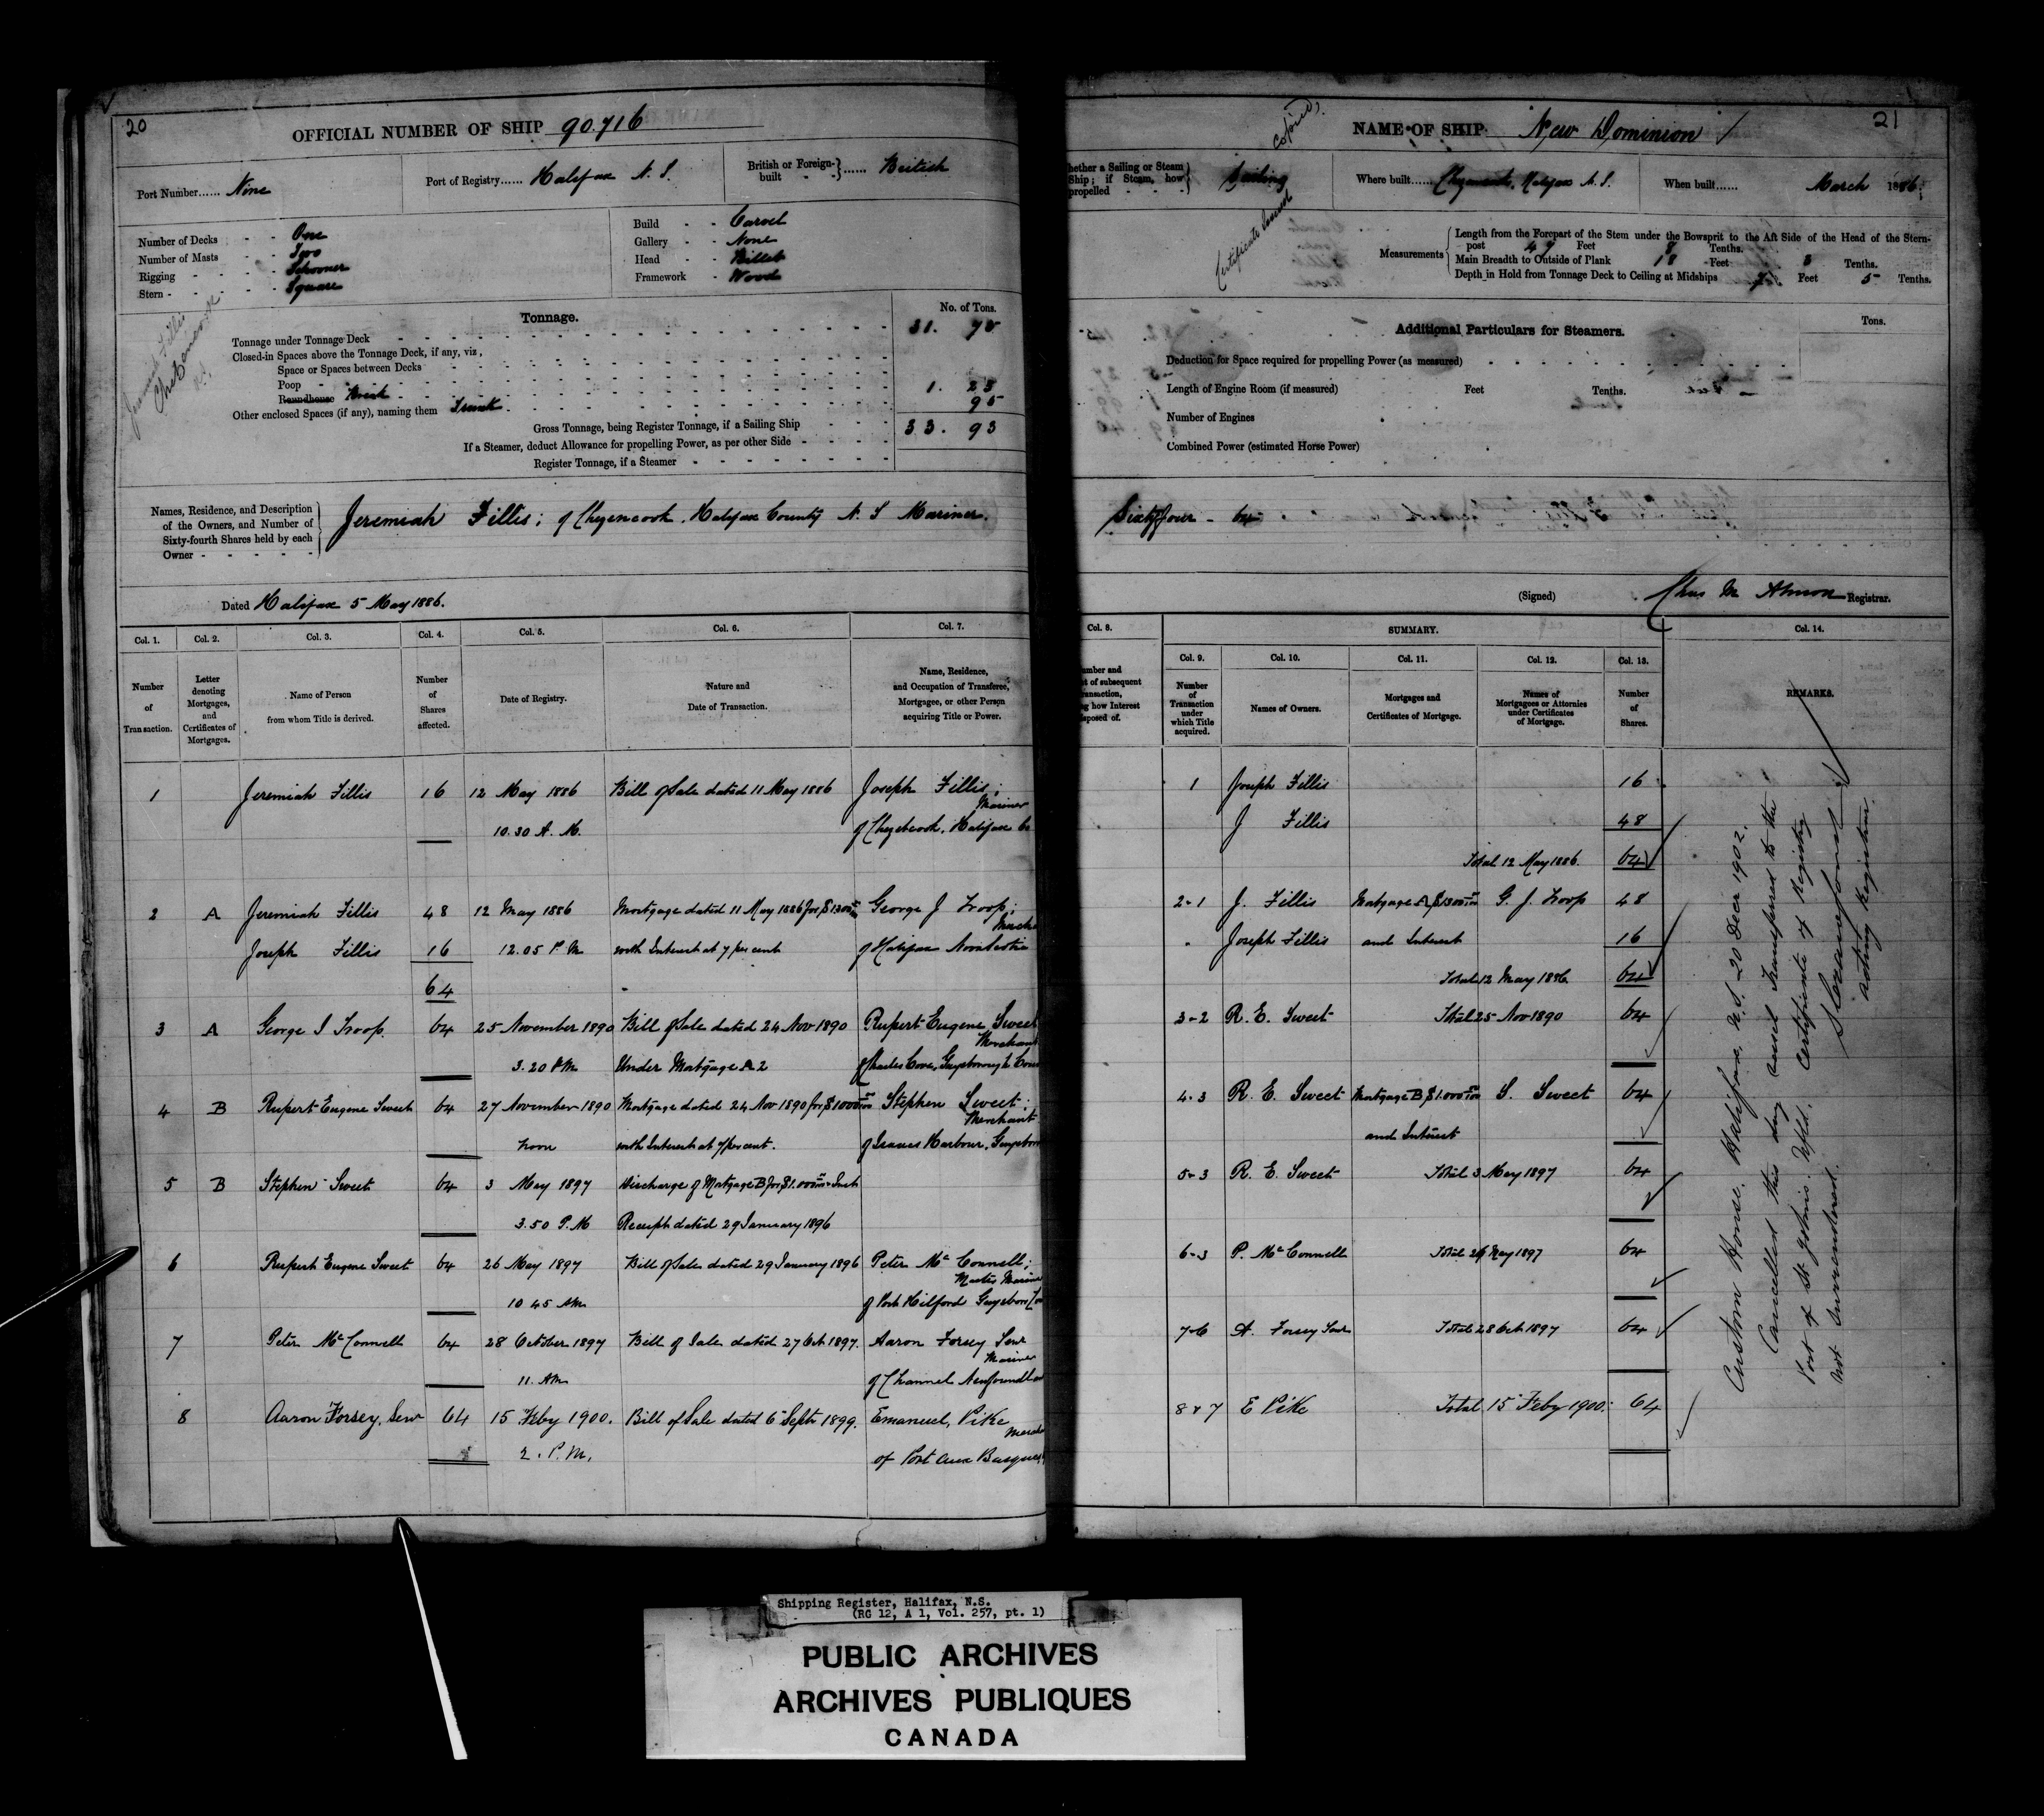 20
OFFICIAL NUMBER OF SHIP 90.716
Port Number...... Nine
Port of Registry...... Halifax N. S.
British or Foreign-built - - } ...... British
Number of Decks - - One
Number of Masts - - Two
Rigging - - - - Schooner
Stern - - - - - Square
Build - - Carvel
Gallery - - None
Head - - Billet
Framework - Wood
Jeremiah Fillis
Chezencook
N.S.
Tonnage.
No. of Tons.
Tonnage under Tonnage Deck 31. 75
Closed-in Spaces above the Tonnage Deck, if any, viz,
Space or Spaces between Decks
Poop
Roundhouse Break 1. 23
Other enclosed Spaces (if any), naming them Trunk 95
Gross Tonnage, being Register Tonnage, if a Sailing Ship 33. 93
If a Steamer, deduct Allowance for propelling Power, as per other Side
Register Tonnage, if a Steamer
Names, Residence, and Description of the Owners, and Number of Sixty-fourth Shares held by each Owner
Jeremiah Fillis; of Chezencook, Halifax County N. S Mariner.
Dated Halifax 5 May 1886.
Col. 1. Col. 2. Col. 3. Col. 4. Col. 5. Col. 6. Col. 7.
Number of Transaction.
Letter denoting Mortgages, and Certificates of Mortgages.
Name of Person from whom Title is derived.
Number of Shares affected.
Date of Registry.
Nature and Date of Transaction.
Name, Residence, and Occupation of Transferee, Mortgagee, or other Person acquiring Title or Power.
1 Jeremiah Fillis 16 12 May 1886 Bill of Sale dated 11 May 1886 Joseph Fillis;
Mariner
10.30 A. M. of Chezencook, Halifax Co
2 A Jeremiah Fillis 48 12 May 1886 Mortgage dated 11 May 1886 for $1300 George J Troop;
Joseph Fillis 16 12.05 P. M with Interest at 7 per cent of Halifax Nova Scotia
64
3 A George J Troop. 64 25 November 1890 Bill of Sale dated 24 Nov 1890 Rupert Eugene Sweet
Merchant
3.20 PM Under Mortgage A 2 of Charles Cove, Guysborough Coun
4 B Rupert Eugene Sweet 64 27 November 1890 Mortgage dated 24 Nov 1890 for $1000 Stephen Sweet;
Merchant
noon with Interest at 7 per cent. of Isaacs Harbour, Guysboro
5 B Stephen Sweet 64 3 May 1897 Discharge of Mortgage B for $1.000
3.50 P. M Receipt dated 29 January 1896
6 Rupert Eugene Sweet 64 26 May 1897 Bill of Sale dated 29 January 1896 Peter Mc Connell;
Master Mariner
10 45 AM of Port Hilford Guysboro Co
7 Peter Mc Connell 64 28 October 1897 Bill of Sale dated 27 Oct 1897. Aaron Forsey Senr
Mariner
11. AM of Channel Newfoundland
8 Aaron Forsey, Senr 64 15 Feby 1900. Bill of Sale dated 6 Septr 1899. Emanuel Pike
2. P. M. of Port aux Basques
21
NAME OF SHIP New Dominion
Copied
Certificate Issued
hether a Sailing or Steam Ship; if Steam, how propelled - - - } Sailing
Where built...... Chezencook, Halifax N. S.
When built...... March 1886.
Measurements
Length from the Forepart of the Stem under the Bowsprit to the Aft Side of the Head of the Stern-
post 49 Feet 8 Tenths.
Main Breadth to Outside of Plank 18 Feet 3 Tenths.
Depth in Hold from Tonnage Deck to Ceiling at Midships 7 Feet 5 Tenths.
Additional Particulars for Steamers.
Tons.
Deduction for Space required for propelling Power (as measured)
Length of Engine Room (if measured) Feet Tenths.
Number of Engines
Combined Power (estimated Horse Power)
Sixty four - 64
(Signed) Chas M Almon Registrar.
Col. 8. SUMMARY. Col. 14.
Col. 9. Col. 10. Col. 11. Col. 12. Col. 13.
umber and
t of subsequent
ransaction,
g how Interest
isposed of.
Number of Transaction under which Title acquired.
Names of Owners.
Mortgages and Certificates of Mortgage.
Names of Mortgagees or Attornies under Certificates of Mortgage.
Number of Shares.
REMARKS.
1 Joseph Fillis 16
J Fillis 48
Total 12 May 1886. 64
2-1 J. Fillis Mortgage A $1300 G. J. Troop 48
Joseph Fillis and Interest 16
Total 12 May 1886. 64
3-2 R. E. Sweet Total 25 Nov 1890 64
4-3 R. E. Sweet Mortgage B $1.000 S. Sweet 64
and Interest
5-3 R. E. Sweet Total 3 May 1897 64
6-3 P. Mc Connell Total 26 May 1897 64
7-6 A. Forsey Senr Total 28 Oct 1897 64
8 & 7 E Pike Total 15 Feby 1900. 64
Custom House, Halifax, N.S. 20 Decr 1902.
Cancelled this day vessel transferred to the
Port of St Johns. Nfld. Certificate of Registry
not surrendered.
acting Registrar.
Shipping Register, Halifax, N.S.
(RG 12, A 1, Vol. 257, pt. 1)
PUBLIC ARCHIVES
ARCHIVES PUBLIQUES
CANADA